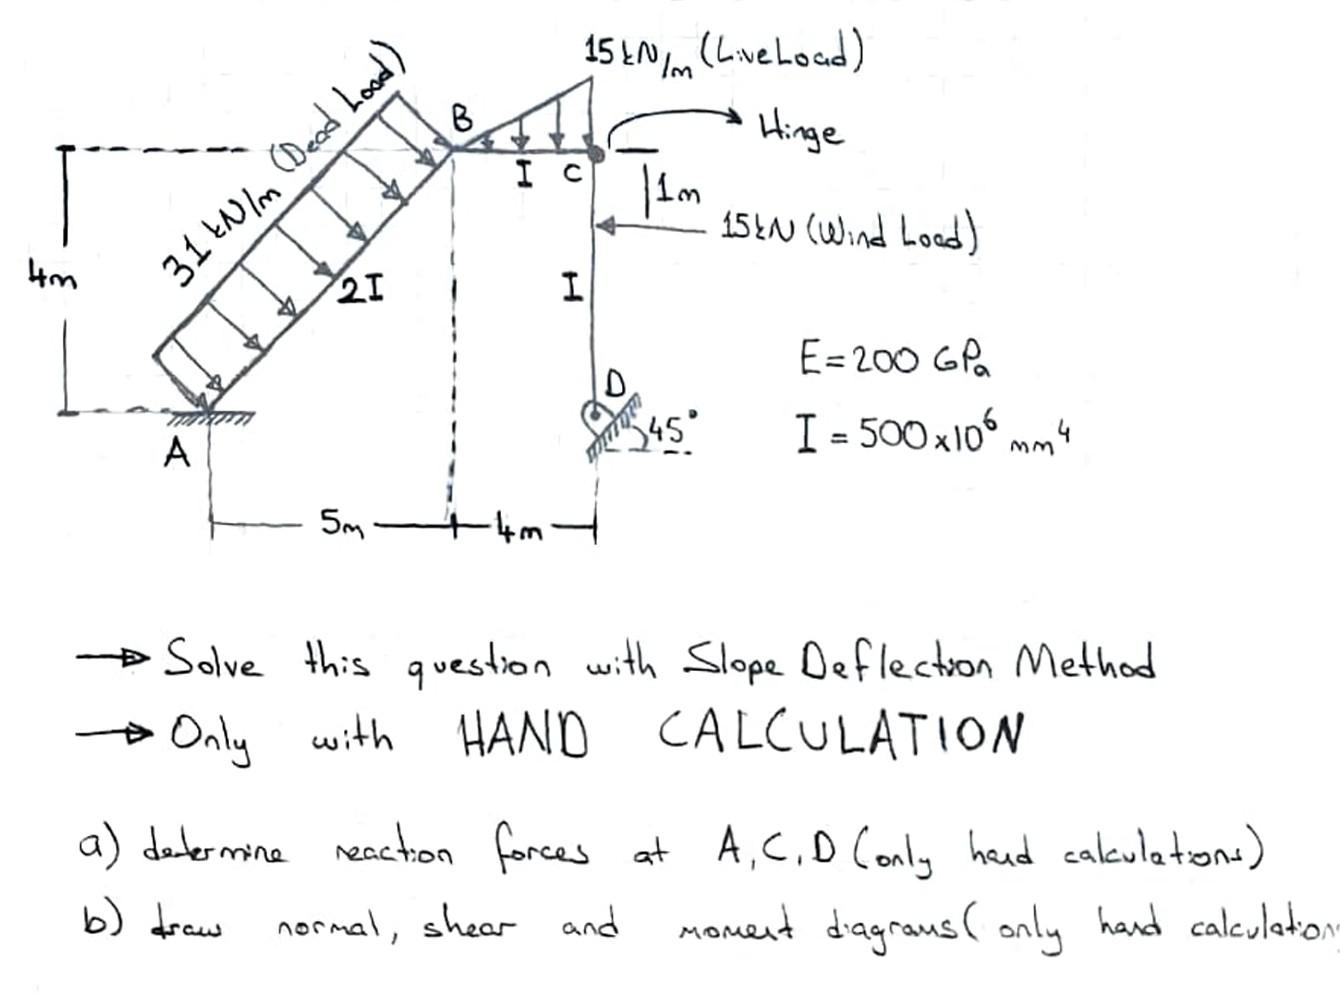 15 kN/m (Live Load)
B
Hinge
31 kN/m (Dead Load)
I
C
1m
15kN (Wind Load)
4m
2I
I
E=200 GPa
D
45°
I = 500x10⁶ mm⁴
A
5m
4m
→ Solve this question with Slope Deflection Method
→ Only with HAND CALCULATION
a) determine reaction forces at A, C, D (only hand calculations)
b) draw normal, shear and moment diagrams( only hand calculation